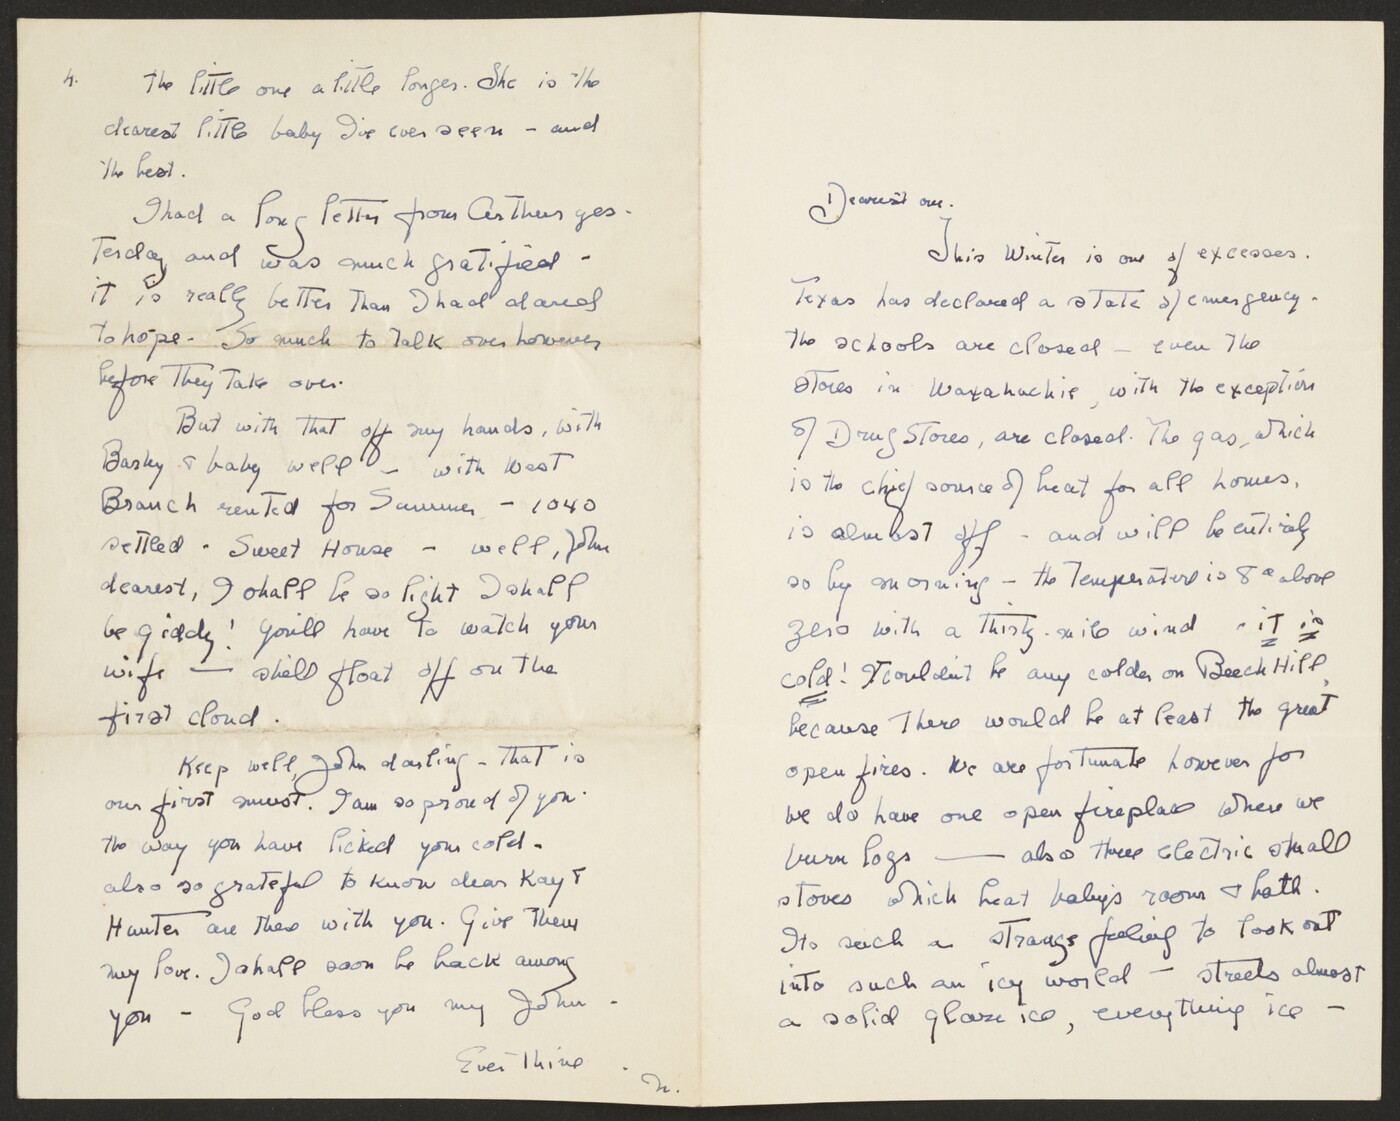 4.
the little one a little longer. She is the
dearest little baby I've ever seen – and
the best.
I had a long letter from Arthur yes-
terday and was much gratified –
it is really better than I had dared
to hope. So much to talk over however
before they take over.
But with that off my hands, with
Basky & baby well – with West
Branch rented for Summer – 1040
settled – Sweet House – well, John
dearest, I shall be so light I shall
be giddy! You'll have to watch your
wife — she'll float off on the
first cloud.
Keep well, John darling – that is
our first must. I am so proud of you.
the way you have licked your cold –
also so grateful to know dear Kay &
Hunter are there with you. Give them
my love. I shall soon be back among
you – God bless you my John –
Ever Thine
N.
Dearest one.
This Winter is one of excesses.
Texas has declared a state of emergency.
the schools are closed – even the
stores in Waxahachie, with the exception
of Drug Stores, are closed. The gas, which
is the chief source of heat for all homes,
is almost off – and will be entirely
so by morning – the Temperature is 8° above
zero with a thirty-mile wind – it is
cold! It couldn't be any colder on Beech Hill,
because there would be at least the great
open fires. We are fortunate however for
we do have one open fireplace where we
burn logs — also three electric small
stoves which heat baby's room & bath.
Its such a strange feeling to look out
into such an icy world – streets almost
a solid glare ice, everything ice –